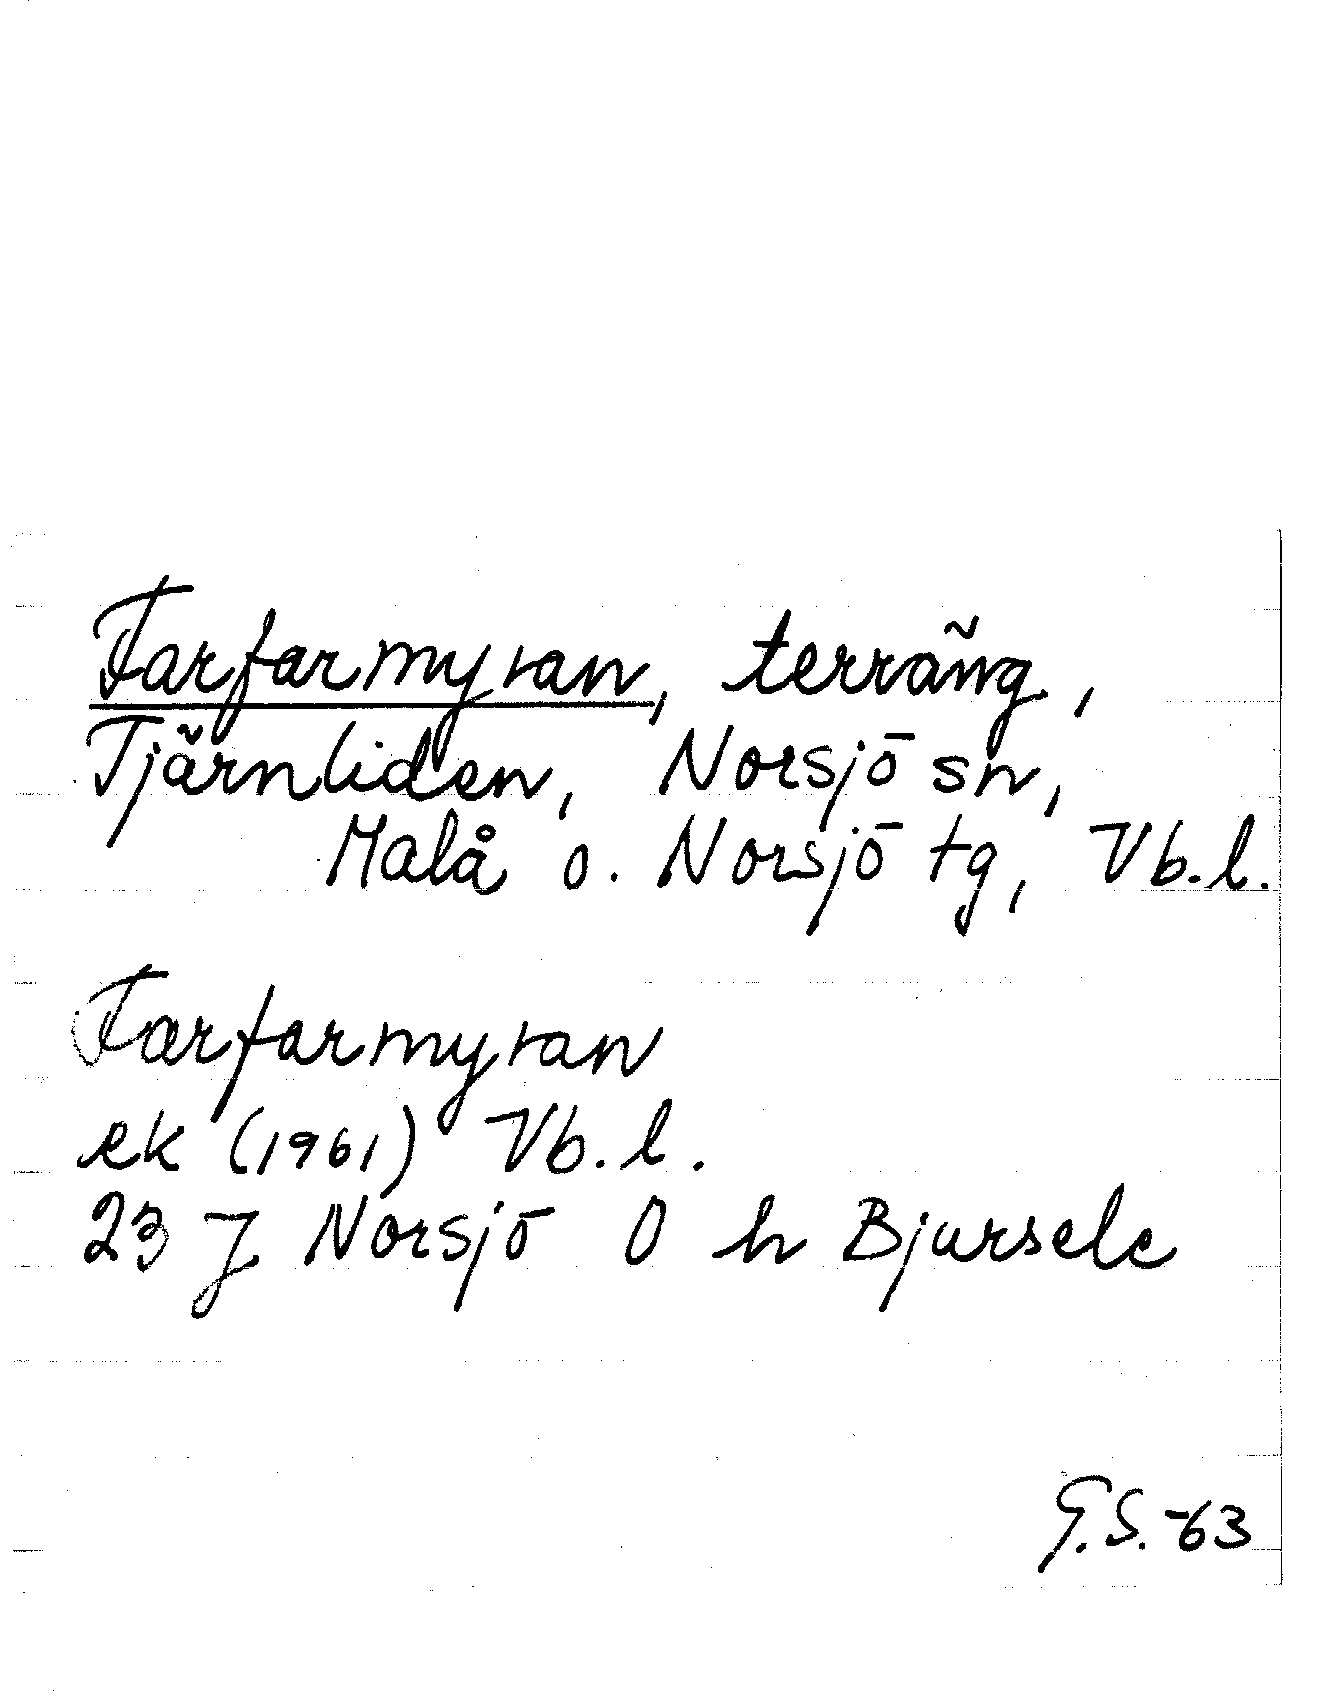 Farfarmyran, terräng,
Tjärnliden, Norsjö sn,
Malå o. Norsjö tg, Vb.l.
Farfarmyran
ek (1961) Vb.l.
23 J Norsjö O h Bjursele
G.S. -63